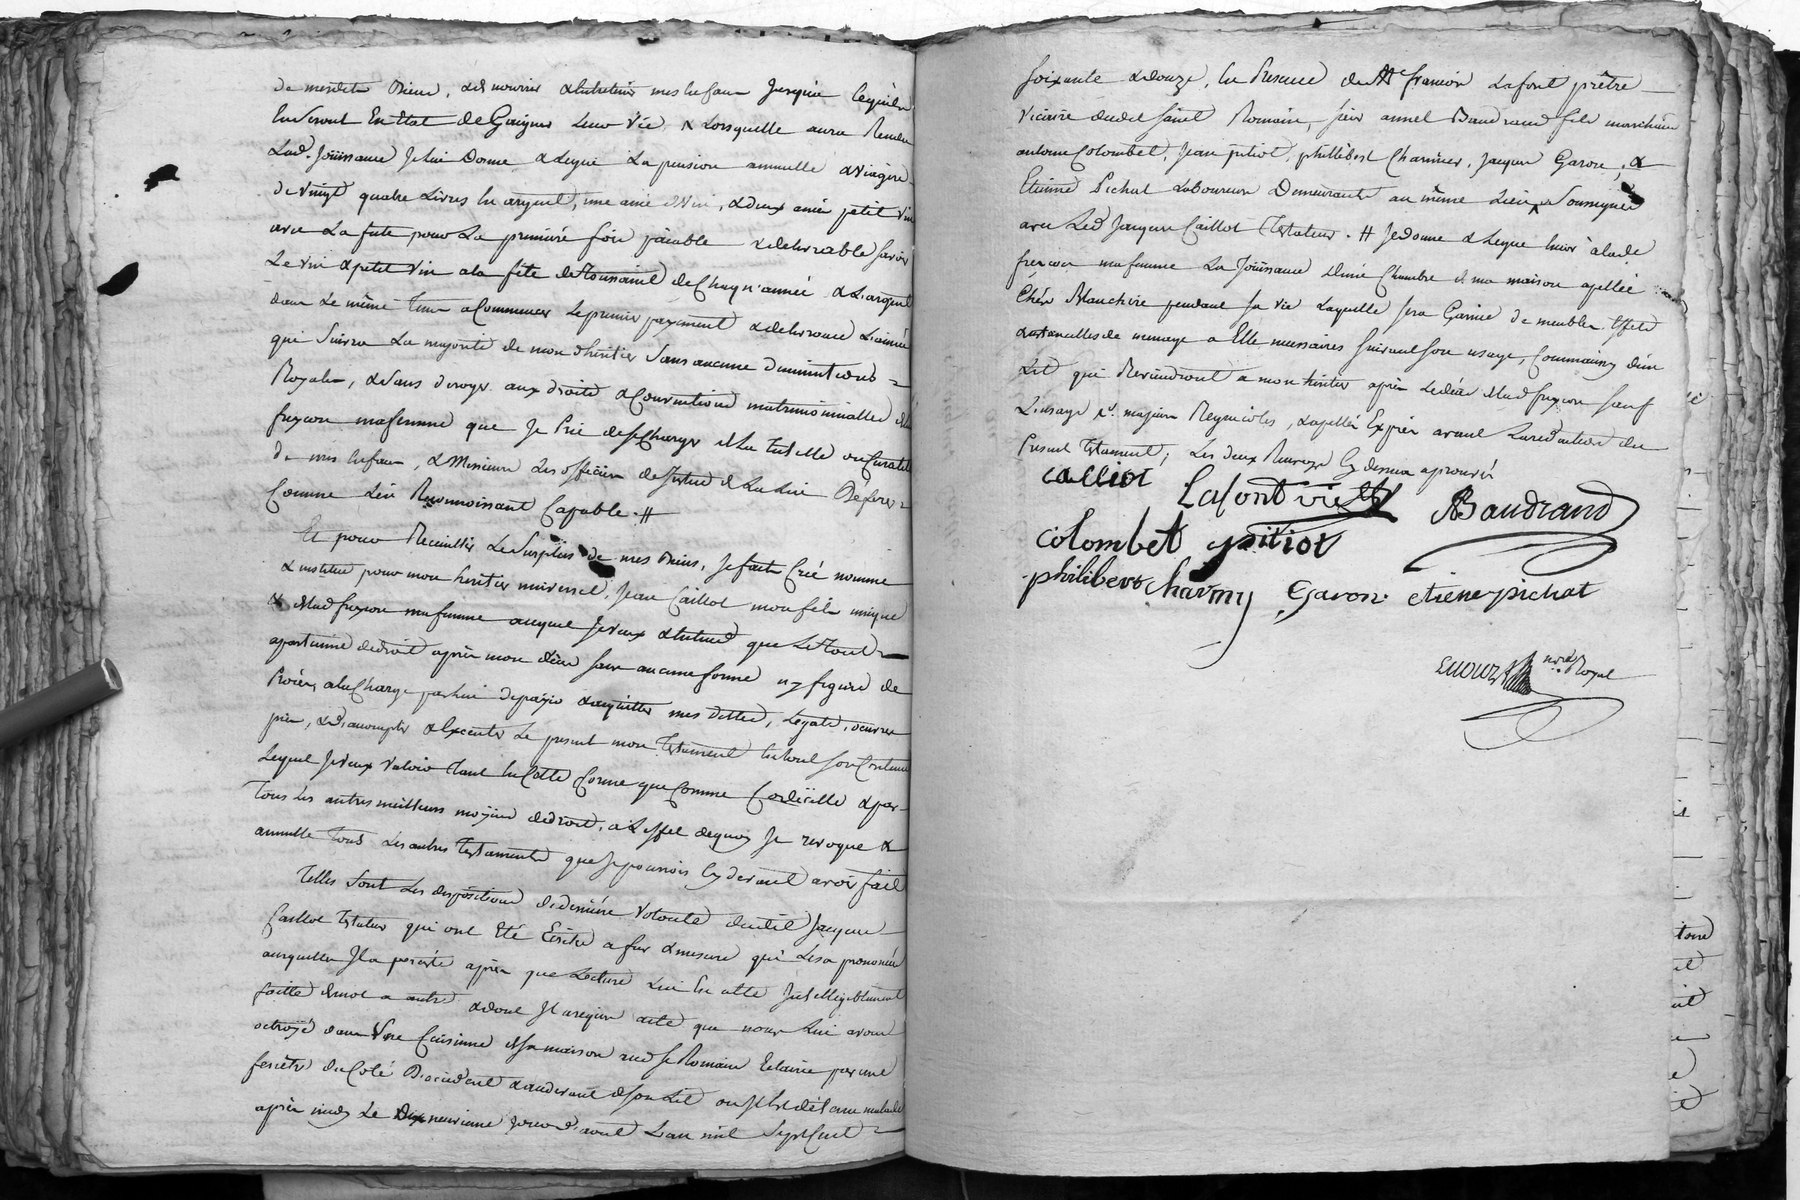 de mesdits Biens, & de nourrir & Entretenir mes Enfans Jusques
En Etat de Gaigner Leur Vie & Lorsquelle aura Rendu
Lad. Joüissance Je lui Donne & Legue La pension annuelle & Viagere
de Vingt quatre Livres En argent, une anée de Vin, & deux anées petit Vin
avec La futte pour La premiere fois païable & delivrable Savoir
Le Vin & petit Vin a la fête de Toussaint de Chaqu'année & L'argent
dans Le même Tems a Commencer Le premier payement & delivrance L'année
qui Suivra La majorité de mon d. héritier Sans aucune Diminutions
Royales, & Sans deroger aux droits & Conventions matrimonialles de lad.
frecon ma femme que Je Prie de se Charger de La Tutelle ou Curatelle
de mes Enfans, & Messieurs Les officiers de Justice de La Lui Déferer
Comme L'en Reconnoissant Capable. #
Et pour Recueillir Le Surplus de mes Biens, Je fait Créé nomme
& institue pour mon heritier universel, Jean Caillot mon fils unique
& de Lad frecon ma femme auquel Je Veux & Entend que Le Tout
apartienne de droit après mon décès Sans aucune forme ny figure de
Procès, a la Charge par lui de païer & acquitter mes dettes, Legats, oeuvres
pies, & d'accomplir & Executer Le present mon Testament En tout Son Contenu
Lequel Je Veux Valoir Tant En Cette forme que Comme Codicille & par
Tous Les autres meilleurs moyens de droit, a L'effet de quoy Je revoque &
annulle Tous Les autres Testaments que Je pourrois Cy devant avoir fait
Telles Sont Les dispositions de derniére Volonté dudit Jacques
Caillot Testateur qui ont Eté Ecrites a fur & mesure qu'il Les a prononcé
auxquelles Il a persisté après que Lecture Lui En a Eté Intelligiblement
faitte de mot a autre & dont Il a requis acte que nous Lui avons
octroyé dans Une Cuisinne de Sa maison rue St Romain Eclairée par une
fenêtre du Coté D'occident & au devant de Son Lit ou Il Est détenu malade
après midy Le Dix neuvieme Jour d'avril L'an mil Sept Cent
Soixante & douze, En Presence de Mre francois Lafont prêtre
Vicaire dudit Saint Romain, Sieur annet Baudrand fils marchand
antoine Colombet, Jean pitiot, phillibert Charmier, Jacques Garon, &
Etienne Pichat Laboureurs Demeurants au même Lieu Soussignés
avec Led Jacques Caillot Testateur. # Je donne & Legue Encor à lade
frecon ma femme La Joüissance d'une Chambre de ma maison apellée
Chés Blanchire pendant Sa vie Laquelle Sera Garnie de meubles Effets
& ustancilles de menage a Elle necessaires Suivant Son usage, Communs d'un
Lit qui Reviendront a mon héritier après Le décès de Lad frecon Sauf
L'usage Ed. majeurs Regnicoles, & apellés Exprès avant La redaction du
Present Testament; Les deux Renvoys Cy dessus aprouvés
calliot Lafont vic. ABaudrand
colombet j pitiot
philibert charmy Garon etiene pichat
nore Royal